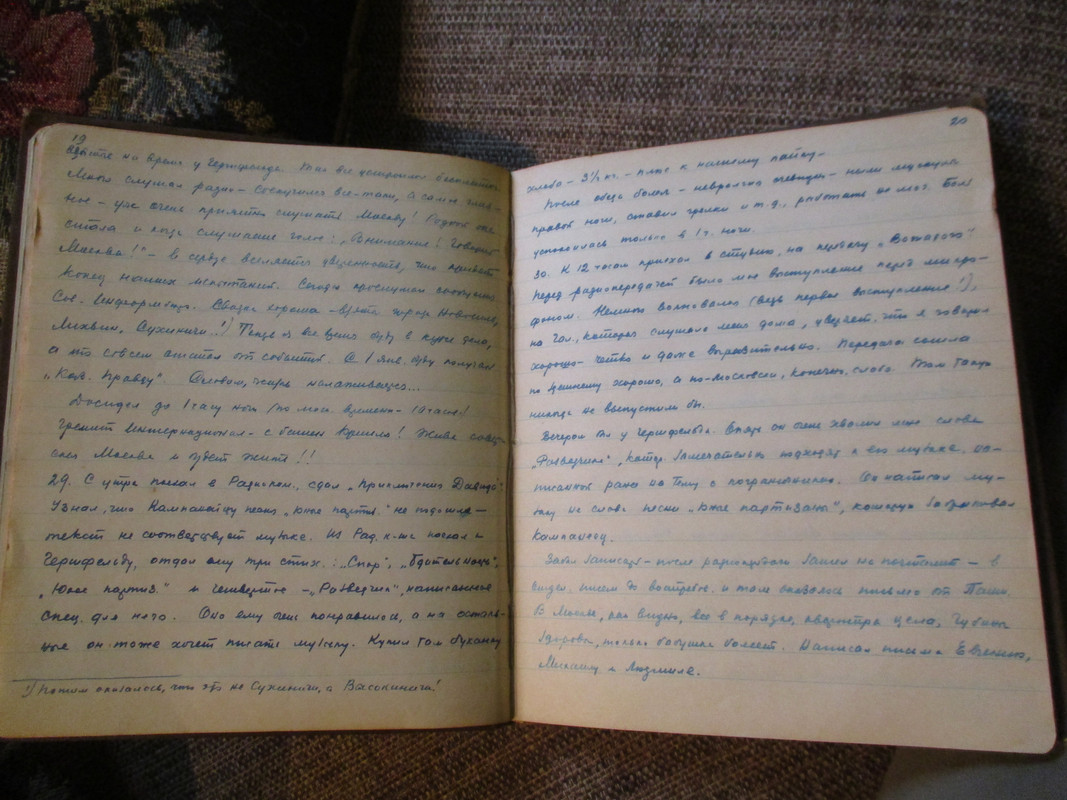 19
у Гернфельда. Там все устроились бесплатно.
Мой случай разно – соскучился все-таки, а самое глав-
ное – уж очень приятно слушать Москву! Родной же
стала и когда слушаешь голос: „Внимание! Говорит
Москва!" – в сердце вселяется уверенность, что
конец наших испытаний. Сегодня прослушал сообщение
Сов. Информбюро. Сводка хороша – взяты города Новосиль,
Лихвин, Сухиничи ¹) Теперь я все время буду в курсе дела,
а то совсем отстал от событий. С 1 янв. буду получать
„ Правду". Словом, жизнь налаживается...
Досидел до 1 часу ночи (по моск. времени – 10 часов)
Гремит Интернационал – с башен Кремля! Жива совет-
ская Москва и будет жить!!
29. С утра поехал в Радиоком., сдал „Приключения Давида".
Узнал, что Кампанейцу песня „Юные партиз." не подошла –
текст не соответствует музыке. Из Рад. к-та поехал к
Гернфельду, отдал ему три стих.: „Спор", „Бдительность",
„Юные партиз." и четвертое – „Разведчик", написанное
спец. для него. Оно ему очень понравилось, а на осталь-
ные он тоже хочет писать музыку. Купил там буханку
¹) Потом оказалось, что это не Сухиничи, а Высокиничи!
20
хлеба – 3½ кг. – плюс к нашему пайку.
После обеда болел – невралгия очевидно – ныли мускулы
правой ноги, ставил грелки и т.д., работать не мог. Боль
успокоилась только в 1 ч. ночи.
30. К 12 часам приехал в студию, на передачу „Вожатого"
Перед радиопередачей было мое выступление перед микро-
фоном. Немного волновался (ведь первое выступление!),
но Гал., которая слушала меня дома, уверяет, что я говорил
хорошо – четко и даже выразительно. Передача сошла
по здешнему хорошо, а по-московски, конечно, слабо. Там такую
никогда не выпустили бы.
Вечером был у Гернфельда. Опять он очень хвалил мои слова
„Разведчика", котор. замечательно подходят к его музыке, на-
писанной рано на тему о пограничниках. Он написал му-
зыку на слова песни „Юные партизаны", которую забраковал
Кампанеец.
Забыл записать – после радиопередачи зашел на почтамт – в
отдел писем до востреб., и там оказалось письмо от
В Москве, как видно, все в порядке, квартира цела,
здоровы, только бабушка болеет. Написал письма Евгению,
Михаилу и Людмиле.